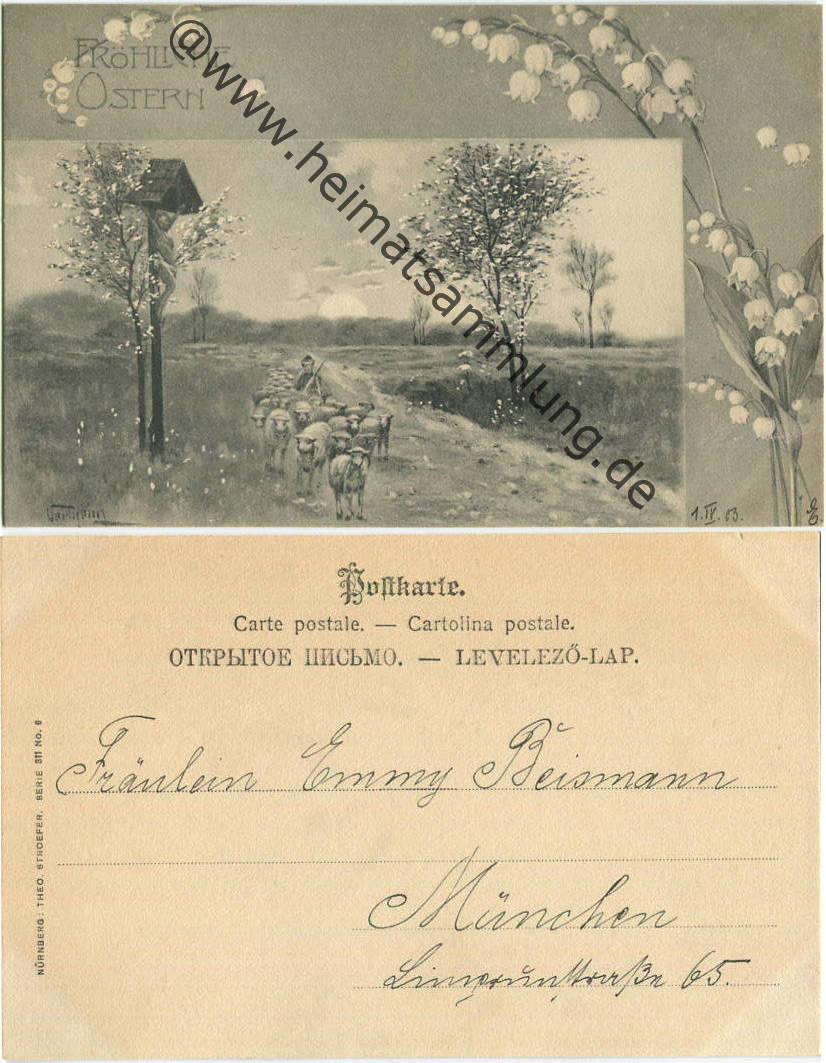 FRÖHLICHE
OSTERN
@www.heimatsammlung.de
1.IV.03.
Postkarte.
Carte postale. — Cartolina postale.
ОТКРЫТОЕ ПИСЬМО. — LEVELEZŐ-LAP.
NÜRNBERG: THEO. STROEFER. SERIE 311 No. 6
Fräulein Emmy Beismann
München
65.